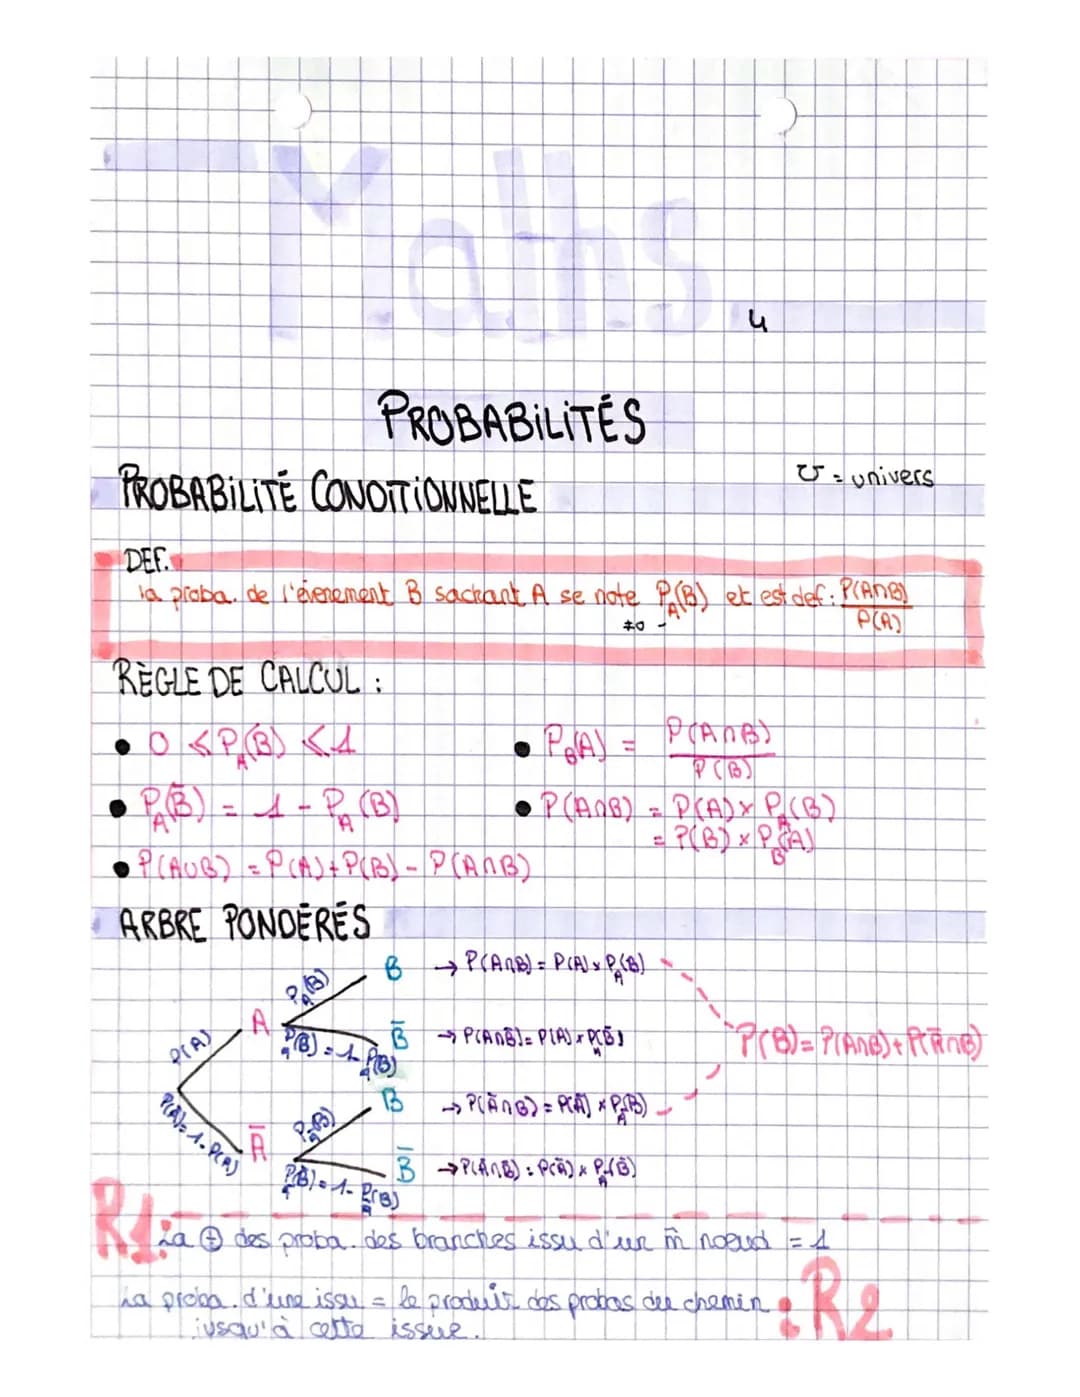 Maths
4
PROBABILITÉS
PROBABILITÉ CONDITIONNELLE
U = univers
DEF.
la proba. de l'évenement B sachant A se note P_A(B) et est def : P(A∩B)/P(A)
≠0
RÈGLE DE CALCUL :
• 0 ≤ P_A(B) ≤ 1
• P_B(A) = P(A∩B)/P(B)
• P_A(B̄) = 1 - P_A(B)
• P(A∩B) = P(A) × P_A(B)
= P(B) × P_B(A)
• P(A∪B) = P(A) + P(B) - P(A∩B)
ARBRE PONDÉRÉS
P(A)
A
P_A(B)
B → P(A∩B) = P(A) × P_A(B)
P_A(B̄) = 1 - P_A(B)
B̄ → P(A∩B̄) = P(A) × P_A(B̄)
P(B) = P(A∩B) + P(Ā∩B)
P(Ā) = 1 - P(A)
Ā
P_Ā(B)
B → P(Ā∩B) = P(Ā) × P_Ā(B)
P_Ā(B̄) = 1 - P_Ā(B)
B̄ → P(Ā∩B̄) = P(Ā) × P_Ā(B̄)
R1: La ⊕ des proba. des branches issu d'un m̄ noeud = 1
La proba. d'une issu = le produit des probas du chemin : R2
jusqu'à cette issue.